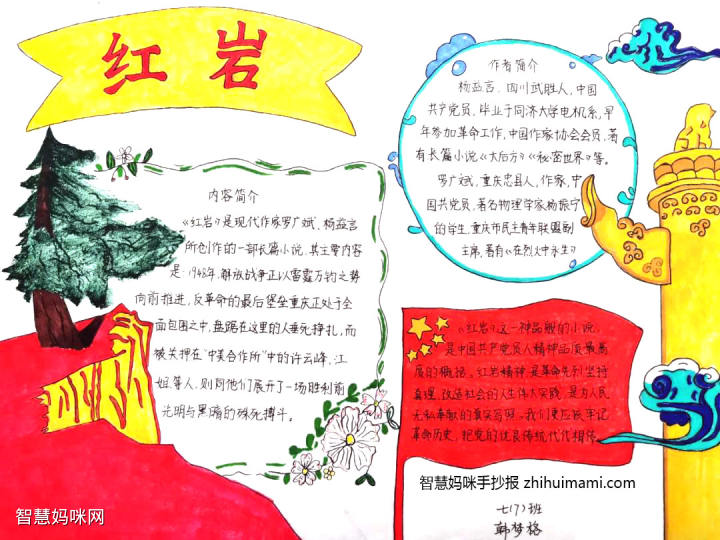 红岩
内容简介
《红岩》是现代作家罗广斌、杨益言
所创作的一部长篇小说,其主要内容
是:1948年,解放战争正以雷霆万钧之势
向前推进,反革命的最后堡垒重庆正处于全
面包围之中,盘踞在这里的人垂死挣扎,而
被关押在“中美合作所”中的许云峰、江
姐等人,则同他们展开了一场胜利前
光明与黑暗的殊死搏斗。
作者简介
杨益言,四川武胜人,中国
共产党员,毕业于同济大学电机系,早
年参加革命工作,中国作家协会会员,著
有长篇小说《大后方》《秘密世界》等。
罗广斌,重庆忠县人,作家,中
国共党员,著名物理学家杨振宁
的学生,重庆市民主青年联盟副
主席,著有《在烈火中永生》
《红岩》这一神品般的小说,
是中国共产党员人精神品质最高
度的概括。红岩精神,是革命先烈坚持
真理、改造社会的人生伟大实践,是为人民
无私奉献的真实写照。我们更应该牢记
革命历史,把党的优良传统代代相传。
智慧妈咪手抄报 zhihuimami.com
七(7)班
韩梦格
智慧妈咪网